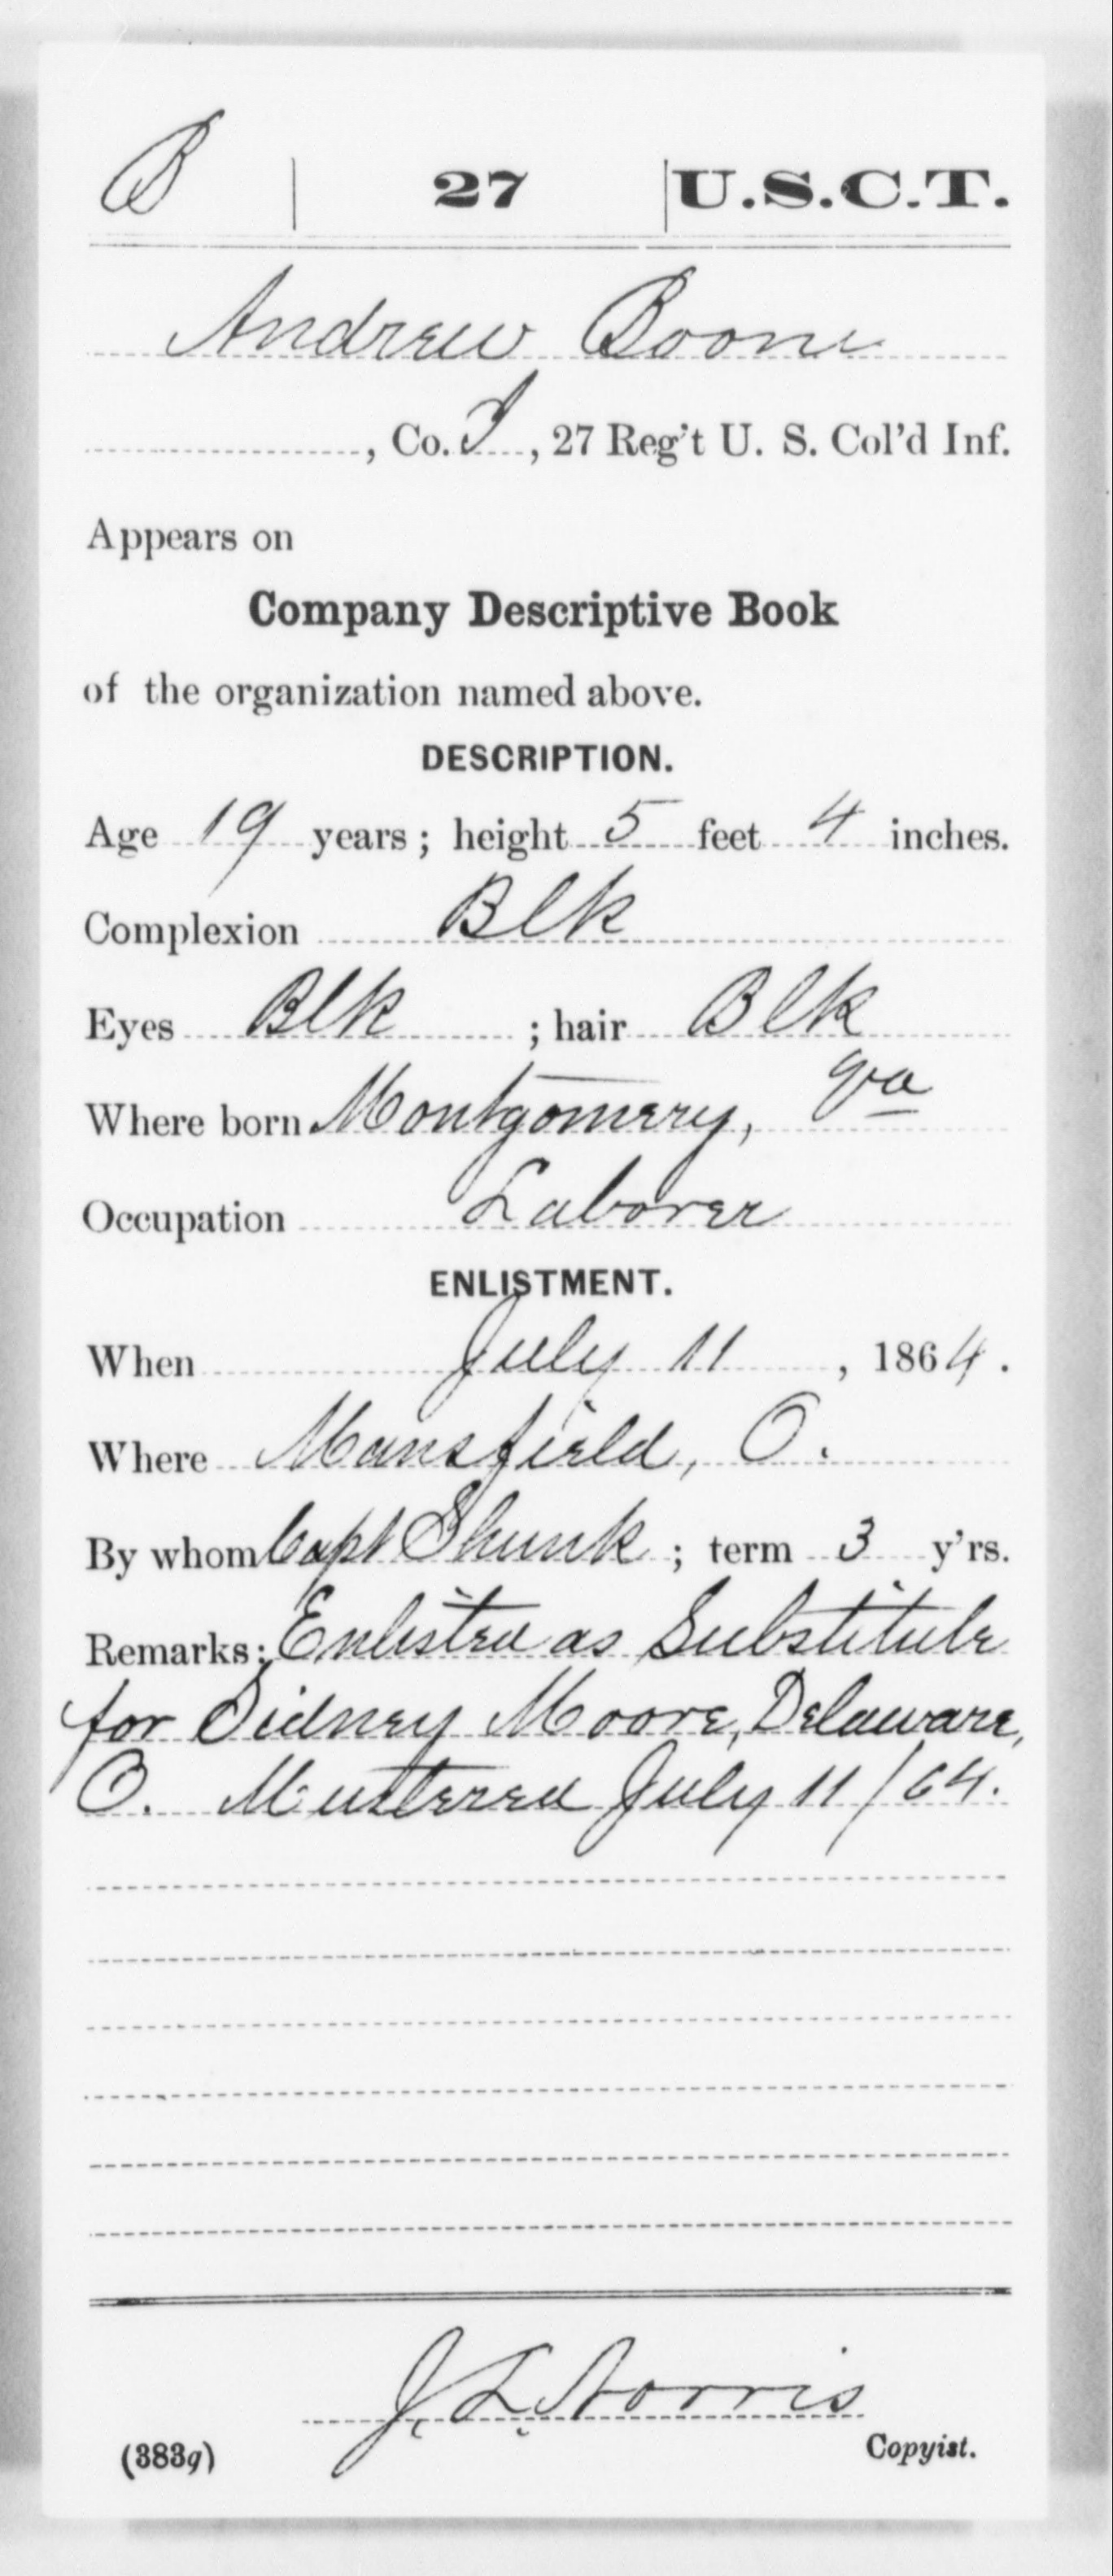 B | 27 | U.S.C.T.
Andrew Boone
, Co. I, 27 Reg't U. S. Col'd Inf.
Appears on
Company Descriptive Book
of the organization named above.
DESCRIPTION.
Age 19 years; height 5 feet 4 inches.
Complexion Blk
Eyes Blk ; hair Blk
Where born Montgomery, Va
Occupation Laborer
ENLISTMENT.
When July 11, 1864.
Where Mansfield, O.
By whom Capt Shunk; term 3 y'rs.
Remarks: Enlisted as Substitute
for Sidney Moore, Delaware,
O. Mustered July 11/64.
J. L. Norris
(383g) Copyist.